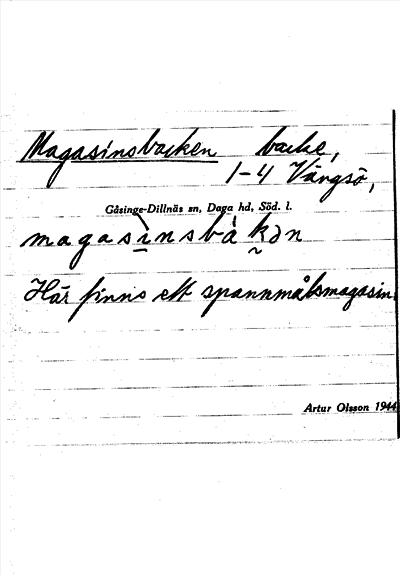 Magasinsbacken backe,
1-4 Vängsö,
Gåsinge-Dillnäs sn, Daga hd, Söd. l.
magasinsbàkən
Här finns ett spannmålsmagasin.
Artur Olsson 1944